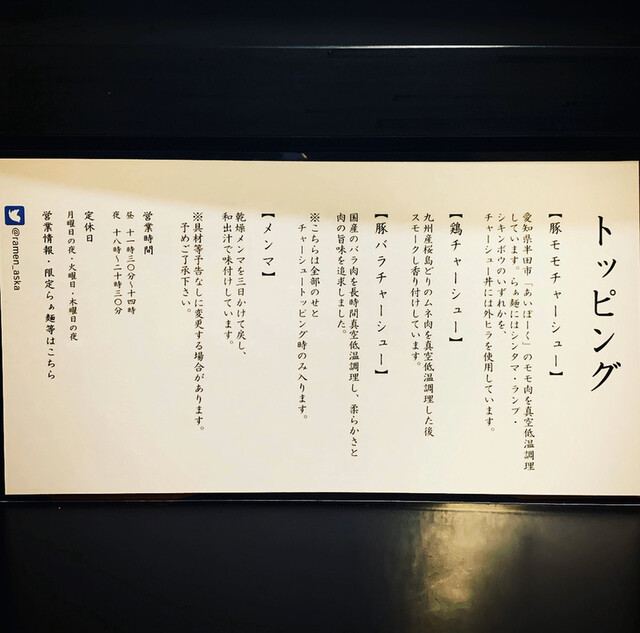 トッピング
【豚モモチャーシュー】
愛知県半田市「あいぽーく」のモモ肉を真空低温調理
しています。らぁ麺にはシンタマ・ランプ・
シキンボウのいずれかを、
チャーシュー丼には外ヒラを使用しています。
【鶏チャーシュー】
九州産桜島どりのムネ肉を真空低温調理した後
スモークし香り付けしています。
【豚バラチャーシュー】
国産のバラ肉を長時間真空低温調理し、柔らかさと
肉の旨味を追求しました。
※こちらは全部のせと
チャーシュートッピング時のみ入ります。
【メンマ】
乾燥メンマを三日かけて戻し、
和出汁で味付けしています。
※具材等予告なしに変更する場合があります。
予めご了承下さい。
営業時間
昼 十一時三〇分〜十四時
夜 十八時〜二十時三〇分
定休日
月曜日の夜・火曜日・木曜日の夜
営業情報・限定らぁ麺等はこちら
@ramen_aska